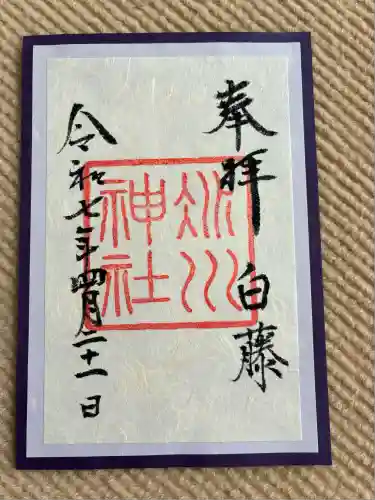 奉拝 白藤
冰川
神社
令和七年四月二十一日